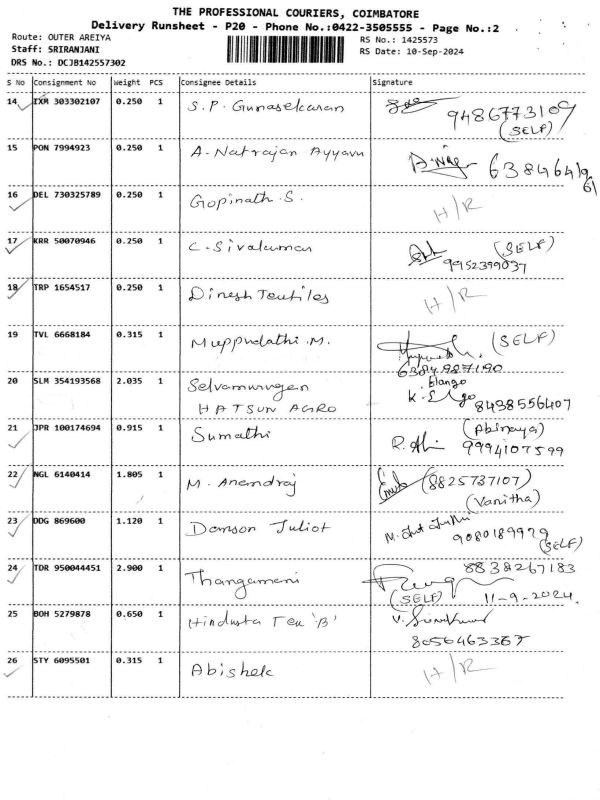 THE PROFESSIONAL COURIERS, COIMBATORE
Delivery Runsheet - P20 - Phone No.:0422-3505555 - Page No.:2
Route: OUTER AREIYA
RS No.: 1425573
Staff: SRIRANJANI
RS Date: 10-Sep-2024
DRS No.: DCJB142557302
S No Consignment No Weight PCS Consignee Details Signature
14 IXM 303302107 0.250 1 S.P. Gunasekaran 9486773109
(SELF)
15 PON 7994923 0.250 1 A. Natrajan Ayyavu 638464196
61
16 DEL 730325789 0.250 1 Gopinath.S. H/R
17 KRR 50070946 0.250 1 C. Sivakumar (SELF)
9952399037
18 TRP 1654517 0.250 1 Dinesh Textiles H/R
19 TVL 6668184 0.315 1 Muppudathi.M. (SELF)
6384987190
20 SLM 354193568 2.035 1 Selvamurugan Elango
HATSUN AGRO K. Elgo 8438556407
21 JPR 100174694 0.915 1 Sumathi (Abinaya)
R. Abi 9994107599
22 NGL 6140414 1.805 1 M. Anandraj (8825737107)
(Vanitha)
23 DDG 869600 1.120 1 Damson Juliot
9080189979
(SELF)
24 TDR 950044451 2.900 1 Thangamani 8838267183
(SELF) 11-9-2024
25 BOH 5279878 0.650 1 Hindusta Tex 'B' V.
8056463367
26 STY 6095501 0.315 1 Abishek H/R